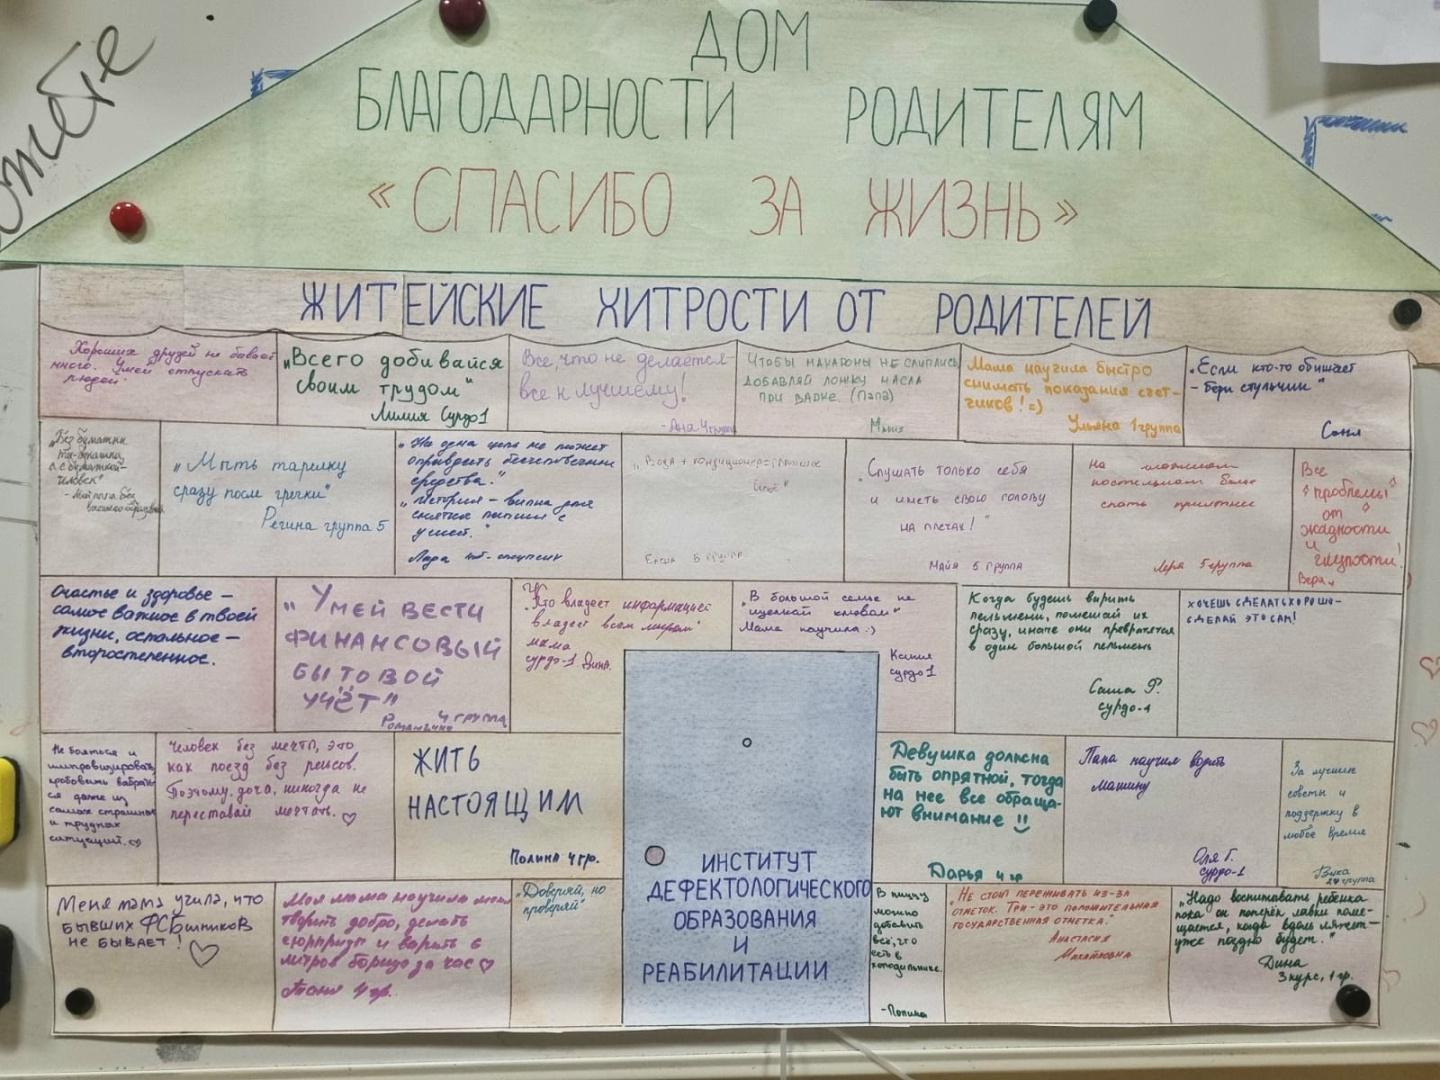 ДОМ
БЛАГОДАРНОСТИ РОДИТЕЛЯМ
«СПАСИБО ЗА ЖИЗНЬ»
ЖИТЕЙСКИЕ ХИТРОСТИ ОТ РОДИТЕЛЕЙ
Хороших друзей не бывает
много. Умей отпускать
людей
„Всего добивайся
своим трудом"
Лилия Сурдо1
Все, что не делается-
все к лучшему!
ЧТОБЫ МАКАРОНЫ НЕ СЛИПЛИСЬ
ДОБАВЛЯЙ ЛОЖКУ МАСЛА
ПРИ ВАРКЕ. (ПАПА)
Мама научила быстро
снимать показания счет-
чиков! =)
Ульяна 1 группа
„Если кто-то обижает
- бери стульчик"
Соня
„Без бумажки
ты-букашка,
а с бумажкой-
человек"
„Мыть тарелку
сразу после гречки"
Регина группа 5
„Ни одна цель не может
оправдать бесчестные
средства."
Слушать только себя
и иметь свою голову
на плечах!"
Майя 5 группа
спать приятнее
Лера 5 группа
Все
проблемы
от
жадности
и
глупости!
Вера
Счастье и здоровье –
самое важное в твоей
жизни, остальное –
второстепенное.
„УМЕЙ ВЕСТИ
ФИНАНСОВЫЙ
БЫТОВОЙ
УЧЁТ"
4 ГРУППА
„Кто владеет информацией
владеет всем миром"
мама
сурдо-1 Дина.
„В большой семье не
щелкай клювом"
Мама научила :)
Ксения
сурдо1
Когда будешь варить
пельмени, помешай их
сразу, иначе они превратятся
в один большой пельмень
Саша Р.
сурдо-1
ХОЧЕШЬ СДЕЛАТЬ ХОРОШО-
СДЕЛАЙ ЭТО САМ!
Не бояться и
импровизировать,
пробовать выбрать-
ся даже из
самых страшных
и трудных
ситуаций.
Человек без мечты, это
как поезд без рельсов.
Поэтому, доча, никогда не
переставай мечтать.
ЖИТЬ
НАСТОЯЩИМ
Полина 4 гр.
Девушка должна
быть опрятной, тогда
на нее все обраща-
ют внимание !!
Дарья 4 гр
Папа научил водить
машину
Оля Г.
сурдо-1
За лучшие
советы и
поддержку в
любое время
Вика
Меня папа учила, что
БЫВШИХ ФСБшников
НЕ БЫВАЕТ!
Моя мама научила меня
творить добро, делать
сюрпризы и варить 6
литров борща за час
Таня 4 гр.
„Доверяй, но
проверяй"
ИНСТИТУТ
ДЕФЕКТОЛОГИЧЕСКОГО
ОБРАЗОВАНИЯ
И
РЕАБИЛИТАЦИИ
В пиццу
можно
добавить
всё, что
есть в
холодильнике.
-Полина
„НЕ СТОИТ ПЕРЕЖИВАТЬ ИЗ-ЗА
ОТМЕТОК. ТРИ-ЭТО ПОЛОЖИТЕЛЬНАЯ
ГОСУДАРСТВЕННАЯ ОТМЕТКА."
АНАСТАСИЯ
МИХАЙЛОВНА
„Надо воспитывать ребенка
пока он поперёк лавки поме-
щается, когда вдоль ляжет-
уже поздно будет."
Дина
3 курс, 1 гр.